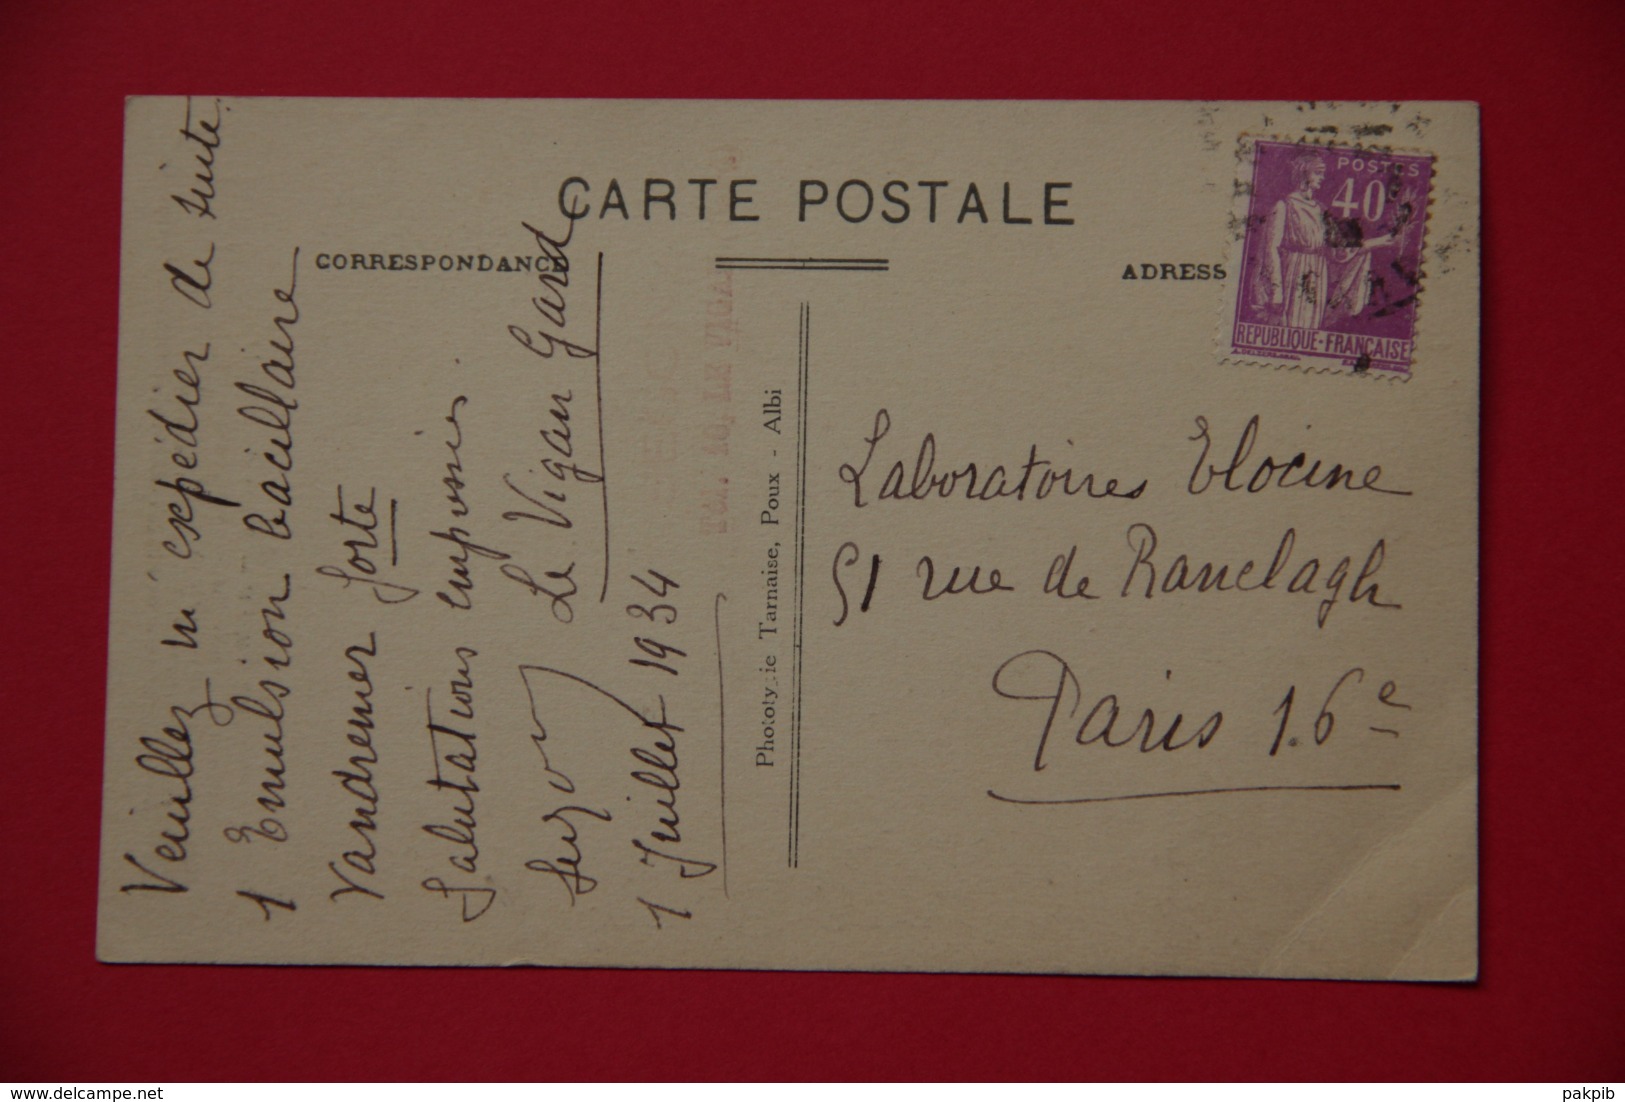 CARTE POSTALE
CORRESPONDANCE
ADRESS
POSTES
40
REPUBLIQUE·FRANÇAISE
Veuillez m'expédier de suite
1 Emulsion bacillaire
Vandremer forte
Salutations empressées
Le Vigan Gard
1 Juillet 1934
Phototypie Tarnaise, Poux - Albi
Laboratoires Elocine
51 rue de Ranelagh
Paris 16e
delcampe.net
pakpib